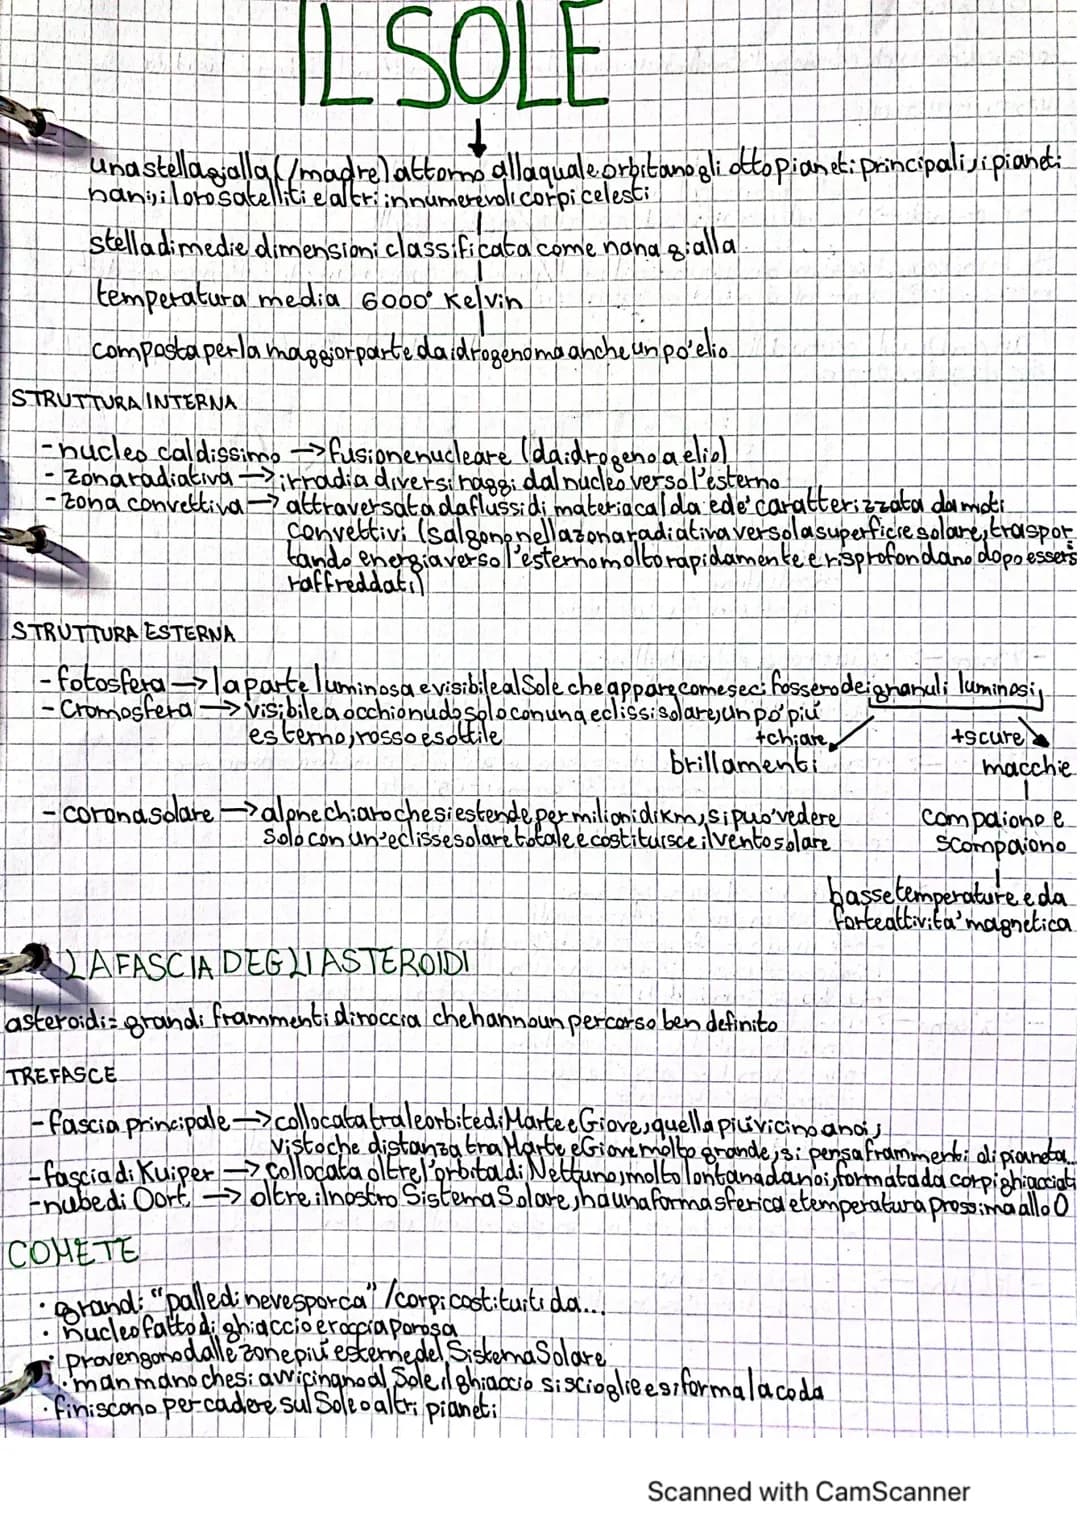 IL SOLE
una stella gialla (/madre) attorno alla quale orbitano gli otto pianeti principali, i pianeti
nani, i loro satelliti e altri innumerevoli corpi celesti
stella di medie dimensioni classificata come nana gialla
temperatura media 6000° Kelvin
composta per la maggior parte da idrogeno ma anche un po' elio
STRUTTURA INTERNA
- nucleo caldissimo → fusione nucleare (da idrogeno a elio)
- zona radiativa → irradia diversi raggi dal nucleo verso l'esterno
- zona convettiva → attraversata da flussi di materia calda ed e' caratterizzata da moti
convettivi (salgono nella zona radiativa verso la superficie solare, traspor
tando energia verso l'esterno molto rapidamente e risprofondano dopo essers
raffreddati)
STRUTTURA ESTERNA
- fotosfera → la parte luminosa e visibile al Sole che appare come se ci fossero dei granuli luminosi,
- Cromosfera → visibile a occhio nudo solo con una eclissi solare, un po' più
esterno, rosso e sottile
+ chiare
+ scure
brillamenti
macchie
- corona solare → alone chiaro che si estende per milioni di km, si puo' vedere
solo con un'eclisse solare totale e costituisce il vento solare
compaiono e
scompaiono
basse temperature e da
forte attivita' magnetica
LA FASCIA DEGLI ASTEROIDI
asteroidi = grandi frammenti di roccia che hanno un percorso ben definito
TRE FASCE
- fascia principale → collocata tra le orbite di Marte e Giove, quella più vicino a noi,
visto che distanza tra Marte e Giove molto grande, si pensa frammenti di pianeta...
- fascia di Kuiper → collocata oltre l'orbita di Nettuno, molto lontana da noi, formata da corpi ghiacciati
- nube di Oort → oltre il nostro Sistema Solare, ha una forma sferica e temperatura prossima allo 0
COMETE
· grandi "palle di neve sporca" / corpi costituiti da...
· nucleo fatto di ghiaccio e roccia porosa
· provengono dalle zone più esterne del Sistema Solare
· man mano che si avvicinano al Sole il ghiaccio si scioglie e si forma la coda
· finiscono per cadere sul Sole o altri pianeti
Scanned with CamScanner